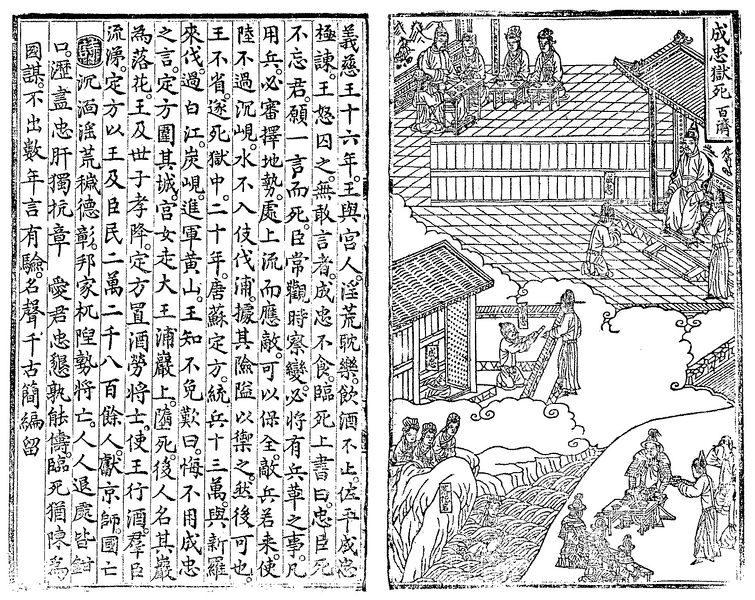 成忠獄死 百濟
義慈王十六年。王與宮人。淫荒耽樂。飲酒不止。佐平成忠
極諫。王怒囚之。無敢言者。成忠不食。臨死上書曰。忠臣死
不忘君。願一言而死。臣常觀時察變。必將有兵革之事。凡
用兵。必審擇地勢。處上流而應敵。可以保全。敵兵若來。使
陸不過沉峴。水不入伎伐浦。據其險隘以禦之。然後可也。
王不省。遂死獄中。二十年。唐蘇定方。統兵十三萬。與新羅
來伐。過白江。炭峴。進軍黃山。王知不免歎曰。悔不用成忠
之言。定方圍其城。宮女走大王浦巖上。墮死。後人名其巖
為落花。王及世子孝降。定方置酒勞將士。使王行酒。群臣
流涕。定方以王及臣民二萬二千八百餘人。獻京師。國亡
詩 沉湎淫荒穢德彰。邦家杌隉勢將亡。人人退處皆鉗
口。瀝盡忠肝獨抗章 愛君忠懇孰能儔。臨死猶陳為
國謀。不出數年言有驗。名聲千古簡編留